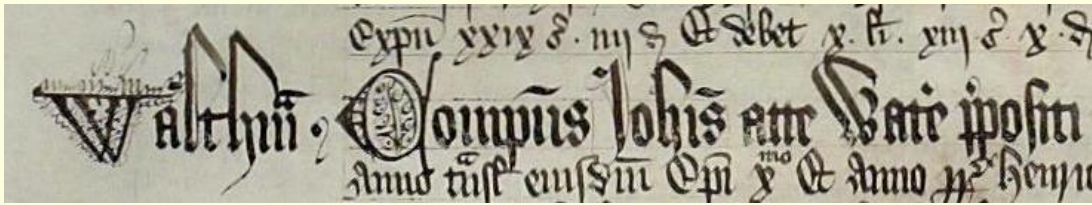 Expn̄ xxix s̄ . iiij d̄ Et debet x . li . xiij s̄ x . d
Walthm̄ᵃ . Compūs Joħis̄ atte Wate p̱positi
Anno tᵃnsl eiusdm̄ Ep̄i xᵐᵒ Et Anno